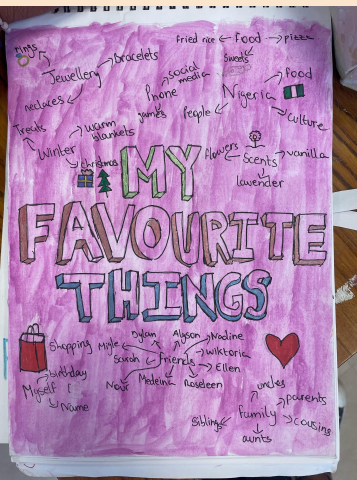 rings
Jewellery
Bracelets
neclaces
fried rice
food
pizza
Sweets
social
media
Phone
games
Nigeria
food
culture
People
Treats
Winter
warm
blankets
christmas
flowers
Scents
vanilla
lavender
MY
FAVOURITE
THINGS
Shopping
Dylan
Alyson
Nadine
Migle
Wiktoria
Sarah
friends
Ellen
Medeina
Roseleen
birthday
Myself
Name
uncles
parents
family
Siblings
cousins
aunts